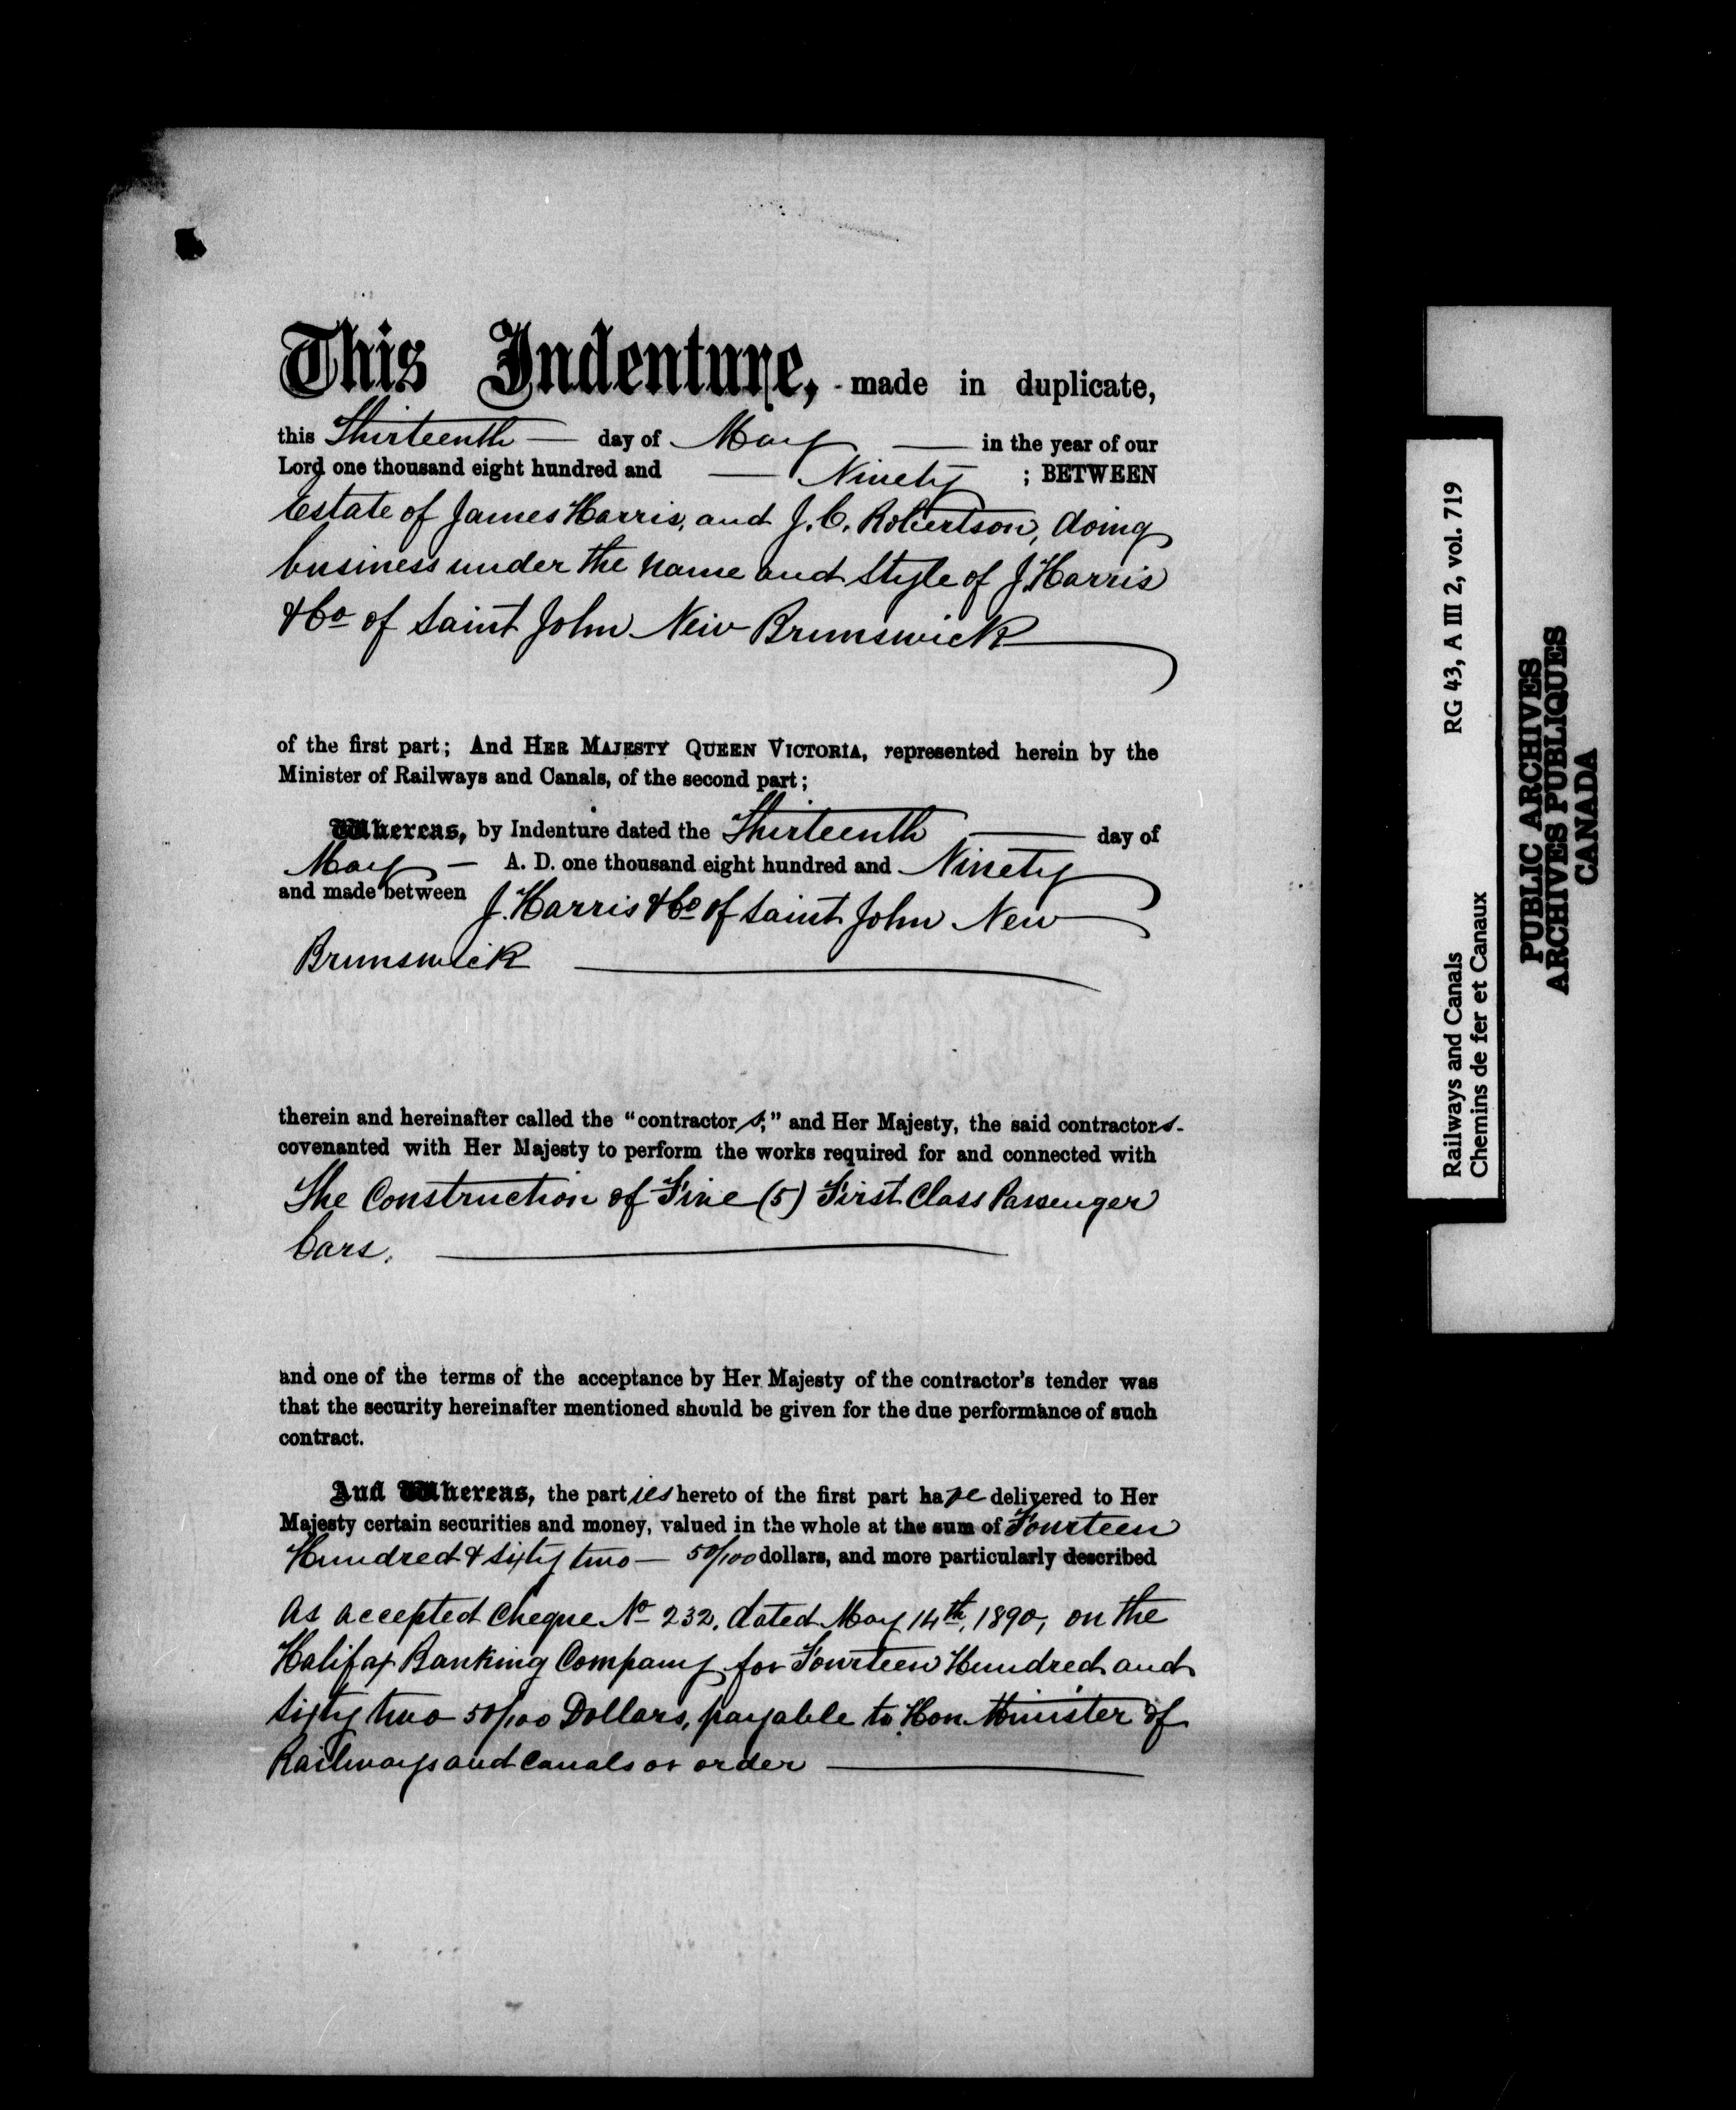 This Indenture, made in duplicate,
this Thirteenth — day of May — in the year of our
Lord one thousand eight hundred and — Ninety ; BETWEEN
Estate of James Harris, and J. C. Robertson, doing
business under the name and Style of J. Harris
& Co of Saint John New Brunswick
of the first part; And HER MAJESTY QUEEN VICTORIA, represented herein by the
Minister of Railways and Canals, of the second part;
Whereas, by Indenture dated the Thirteenth — day of
May — A. D. one thousand eight hundred and Ninety
and made between J. Harris & Co of Saint John New
Brunswick
therein and hereinafter called the "contractors," and Her Majesty, the said contractors
covenanted with Her Majesty to perform the works required for and connected with
The Construction of Five (5) First Class Passenger
Cars.
and one of the terms of the acceptance by Her Majesty of the contractor's tender was
that the security hereinafter mentioned should be given for the due performance of such
contract.
And Whereas, the parties hereto of the first part have delivered to Her
Majesty certain securities and money, valued in the whole at the sum of Fourteen
Hundred & Sixty two — 50/100 dollars, and more particularly described
As accepted Cheque No 232, dated May 14th, 1890, on the
Halifax Banking Company for Fourteen Hundred and
Sixty two 50/100 Dollars, payable to Hon. Minister of
Railways and Canals or order
Railways and Canals RG 43, A III 2, vol. 719
Chemins de fer et Canaux
PUBLIC ARCHIVES
ARCHIVES PUBLIQUES
CANADA